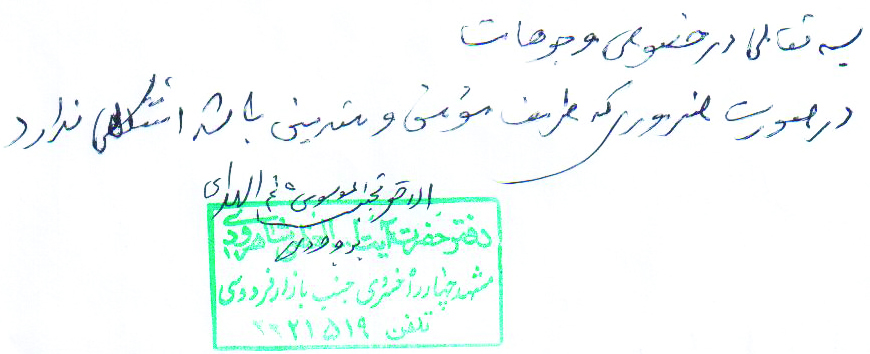 بسمه تعالی در خصوص وجوهات
در صورت ضروری که طرف مؤمن و متدینی باشد اشکال ندارد
الاحقر الموسوی
دفتر حضرت آیت الله شاهرودی
مشهد چهارراه خسروی جنب بازار فردوسی
تلفن ۲۲۲۱۵۱۹